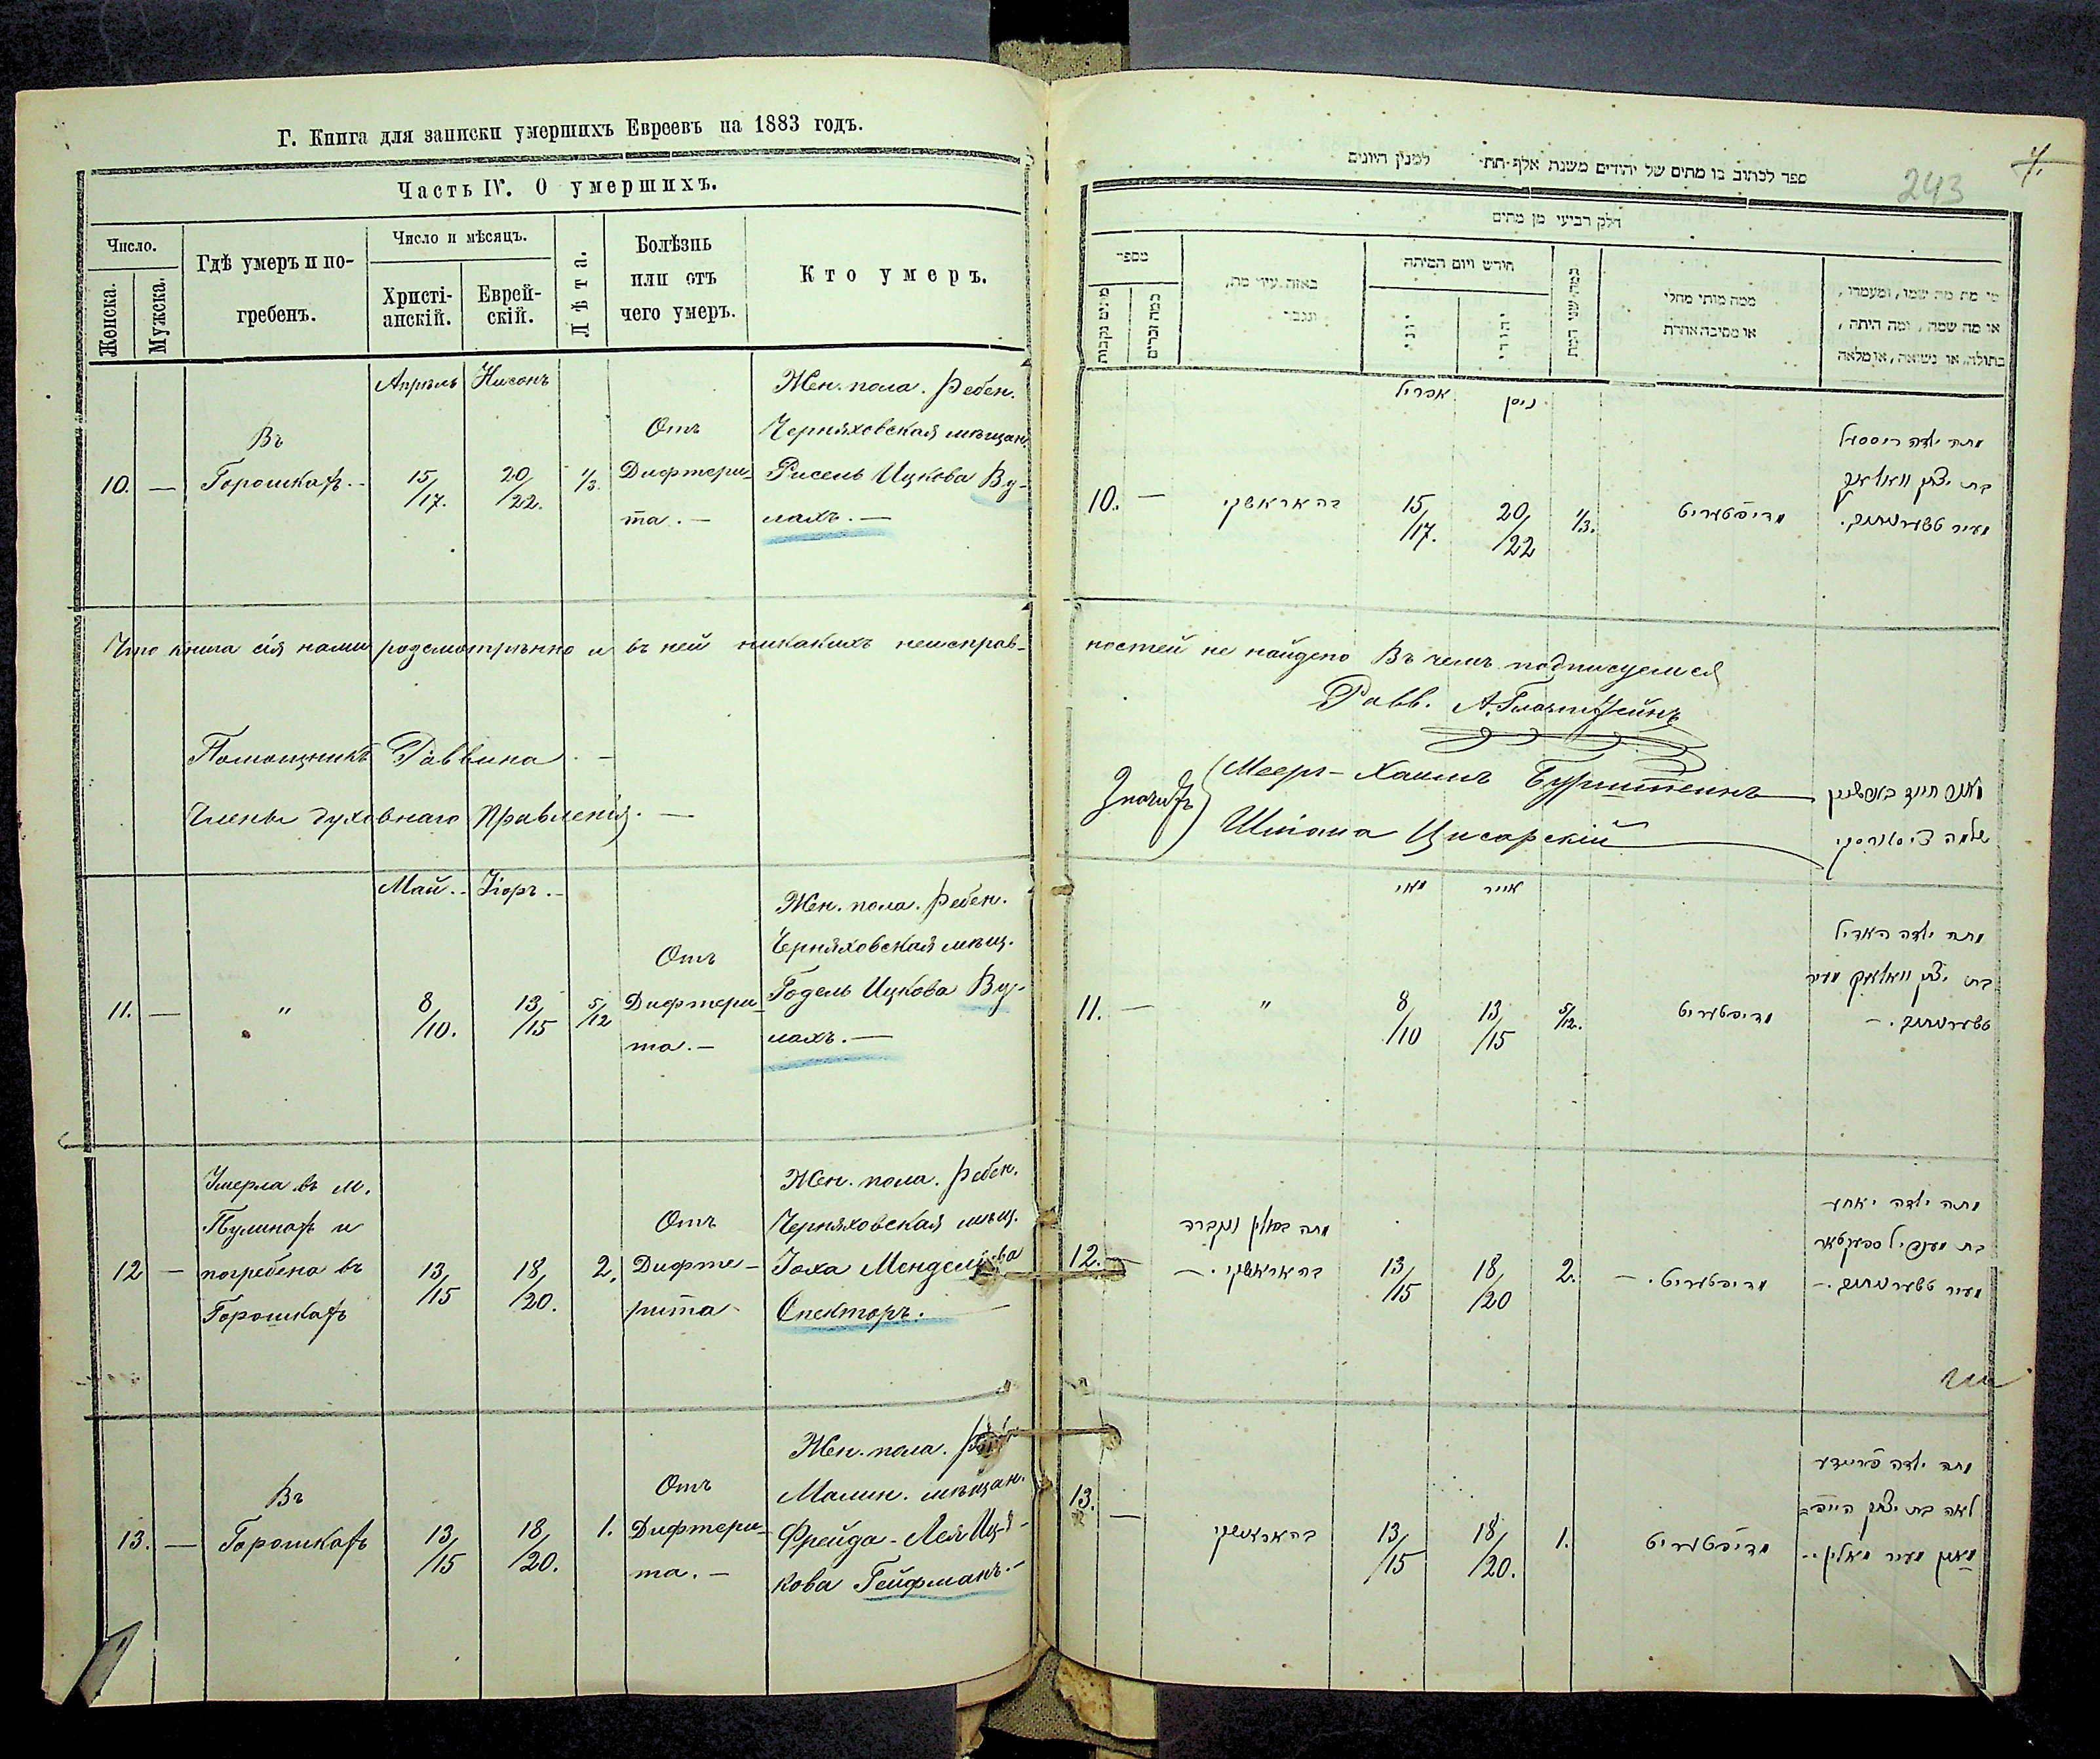 Г. Книга для записки умершихъ Евреевъ на 1883 годъ.
Часть IV. О умершихъ.
Число.
Женска.
Мужска.
Гдѣ умеръ и по-
гребенъ.
Число и мѣсяцъ.
Христі-
анскій.
Еврей-
скій.
Лѣта.
Болѣзнь
или отъ
чего умеръ.
Кто умеръ.
Апрѣль
Нисонъ
10. —
Въ
Горошкахъ.
15/17.
20/22.
1/3
Отъ
Дифтери-
та. —
Жен. пола. Ребен.
Черняховская мѣщан.
Рисель Ицкова Ву-
лахъ. —
Что книга сія нами розсмотрѣнно и въ ней никакихъ неисправ-
Помощникъ Раввина. —
Члены духовнаго Правленія. —
Май.
Іоръ.
11. —
"
8/10.
13/15
5/12
Отъ
Дифтери-
та. —
Жен. пола. Ребен.
Черняховская мѣщ.
Годель Ицкова Ву-
лахъ. —
12 —
Умерла въ м.
Пулинахъ и
погребена въ
Горошкахъ
13/15
18/20.
2.
Отъ
Дифте-
рита
Жен. пола. Ребен.
Черняховская мѣщ.
Іоха Менделева
Спекторъ. —
13. —
Въ
Горошкахъ
13/15
18/20.
1.
Отъ
Дифтери-
та. —
Жен. пола.
Малин. мѣщан.
Фрейда-Лея Иц-
кова Гейфманъ. —
243
ספר לכתוב בו מתים של יהודים משנת אלף תת למנין היונים
חלק רביעי מן מתים
מספר
מנים נקבות
כמה זכרים
באזה עיר מת,
ונקבר
חודש ויום המיתה
יוני
יהודי
כמה שני חיות
ממה מותי מחלי
או מסיבה אחרת
מי מת מה שמו, ומעמדו,
או מה שמה, ומה היתה,
בתולה, או נשואה, או מלאה
אפריל
ניסן
10. —
בהאראשקי
15/17.
20/22
1/3.
מדיפטעריט
מתה ילדה ריססיל
בת יצחק וואלאך
מעיר טשערניחוב.
ностей не найдено Въ чемъ подписуемся
Равв. А.
Мееръ-Хаимъ Бурштейнъ
Шлома Цисарскій
מאיר חיים בורשטיין
שלמה ציסארסקי
מאי
אייר
11. —
"
8/10
13/15
5/12.
מדיפטעריט
מתה ילדה האדיל
בת יצחק וואלאך מעיר
טשערניחוב. —
12. —
מתה בפולין ונקברה
בהאראשקי. —
13/15
18/20
2.
מדיפטעריט. —
מתה ילדה יאחע
בת מענדיל ספעקטאר
מעיר טשערניחוב. —
13. —
בהאראשקי
13/15
18/20.
1.
מדיפטעריט
מתה ילדה פריידע
לאה בת יצחק הייפ=
מאן מעיר מאלין. —